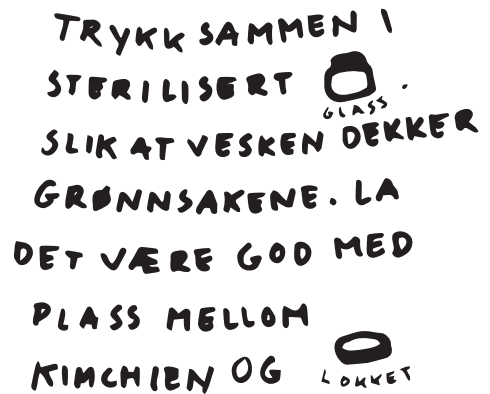 TRYKK SAMMEN I
STERILISERT GLASS .
SLIK AT VESKEN DEKKER
GRØNNSAKENE. LA
DET VÆRE GOD MED
PLASS MELLOM
KIMCHIEN OG LOKKET